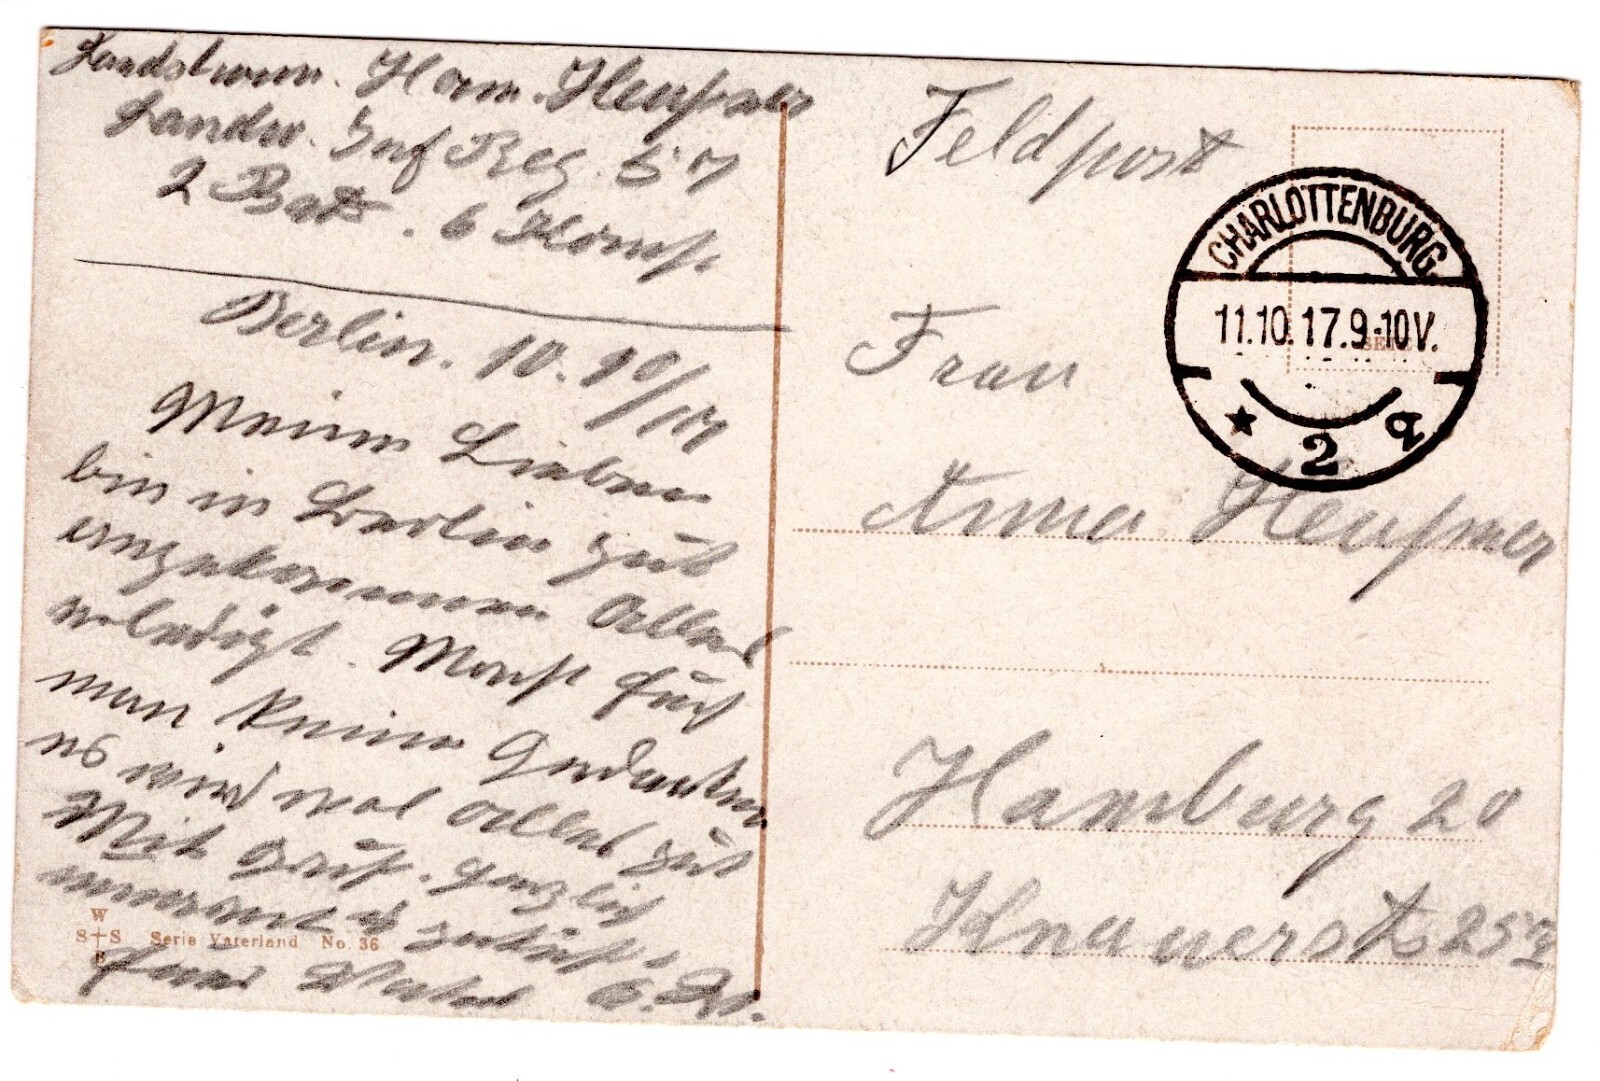 Landsturm. Herm. Heußner
Landw. Inf Reg. 57
2 Batl. 6 Komp.
Berlin. 10. 10/17
Meine Lieben
bin in Berlin gut
angekommen Alles
erledigt. Macht Euch
man keine Gedanken
es wird wol Alles gut
Mit Gruß. Herzlich
umarmt & geküßt.
Euer Vater
W
S+S
B
Serie Vaterland No. 36
Feldpost
CHARLOTTENBURG
11.10.17.9-10V.
* 2 q
Frau
Anna Heußner
Hamburg 20
Knauerst. 25 I